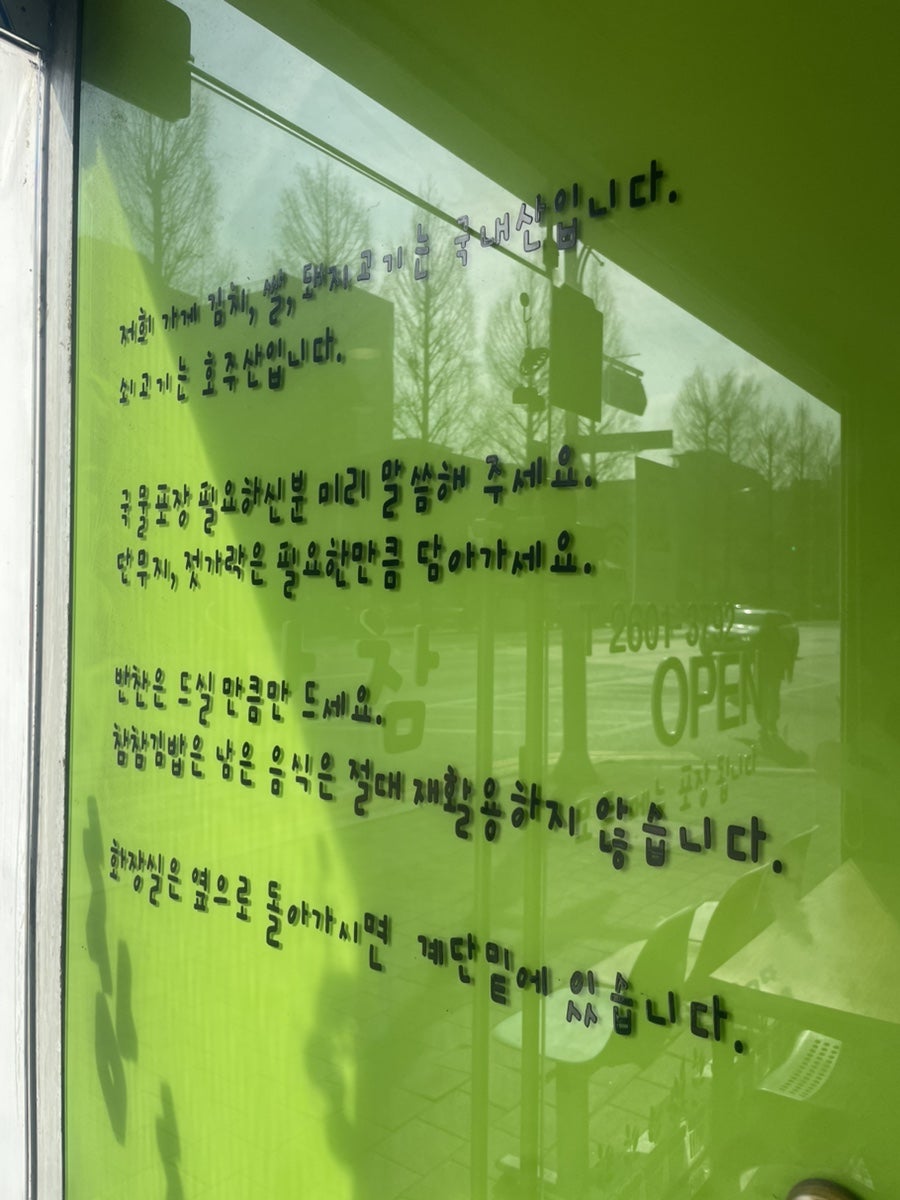 저희 가게 김치, 쌀, 돼지고기는 국내산입니다.
쇠고기는 호주산입니다.
국물포장 필요하신분 미리 말씀해 주세요.
단무지, 젓가락은 필요한만큼 담아가세요.
반찬은 드실 만큼만 드세요.
참참김밥은 남은 음식은 절대 재활용하지 않습니다.
화장실은 옆으로 돌아가시면 계단밑에 있습니다.
참
T 2601-3792
OPEN
포장 됩니다